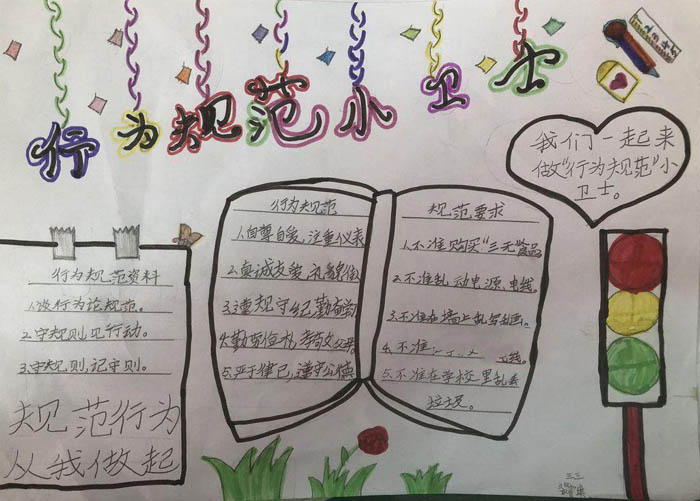 行为规范小卫士
我们一起来
做“行为规范”小
卫士。
行为规范
1.自尊自爱，注重仪表
2.真诚友爱，礼貌
3.遵规守纪勤奋
4.勤劳俭朴 孝敬父母。
5.严于律己，遵守公德
规范要求
1.不准购买“三无食品
2.不准乱动电源，电线。
3.不准在墙上乱写乱画。
4.不准
5.不准在学校里乱丢
垃圾。
行为规范资料
1.谈行为论规范。
2.守规则，见行动。
3.守规则，记守则。
规范行为
从我做起